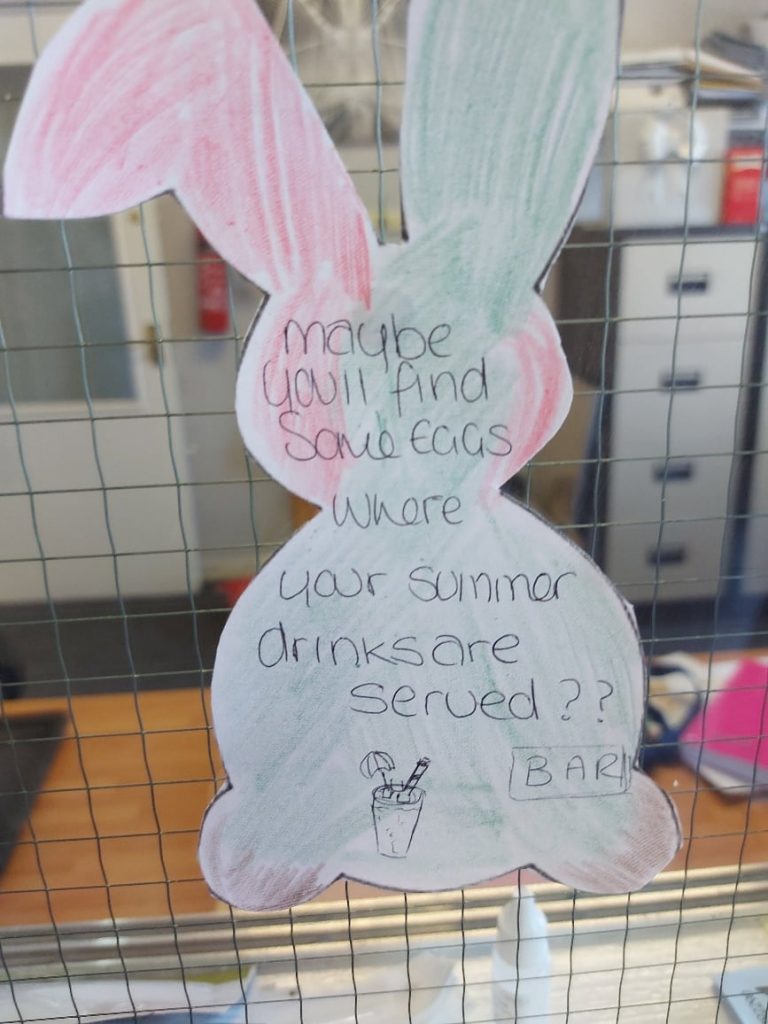 maybe
you'll find
Some EGGS
where
your summer
drinks are
served ??
BAR